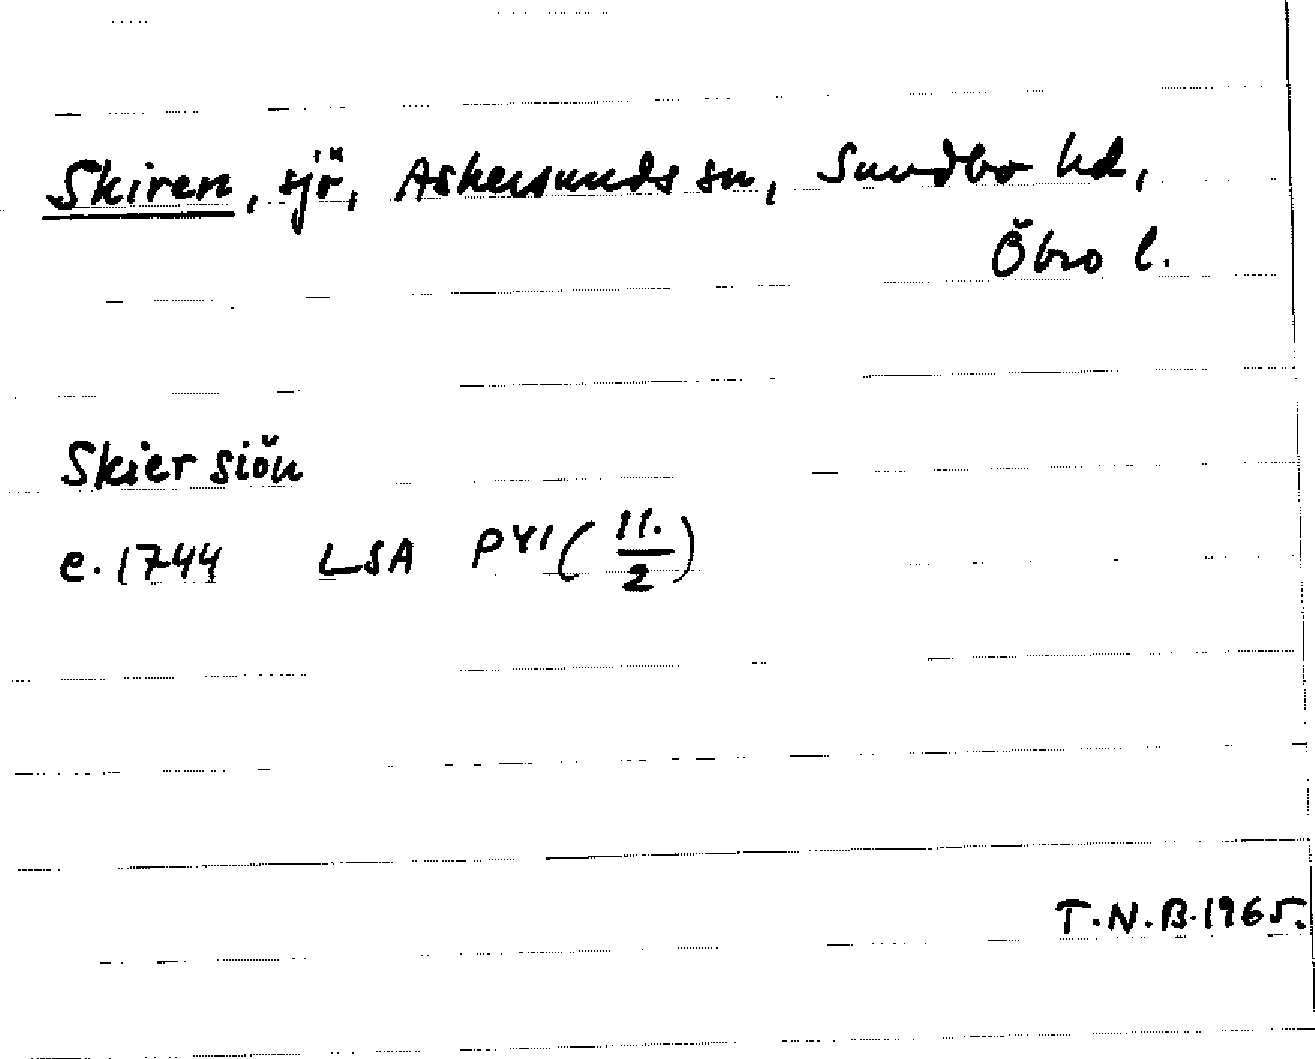 Skiren, sjö, Askersunds sn, Sundbo hd,
Öbro l.
Skier siön
e. 1744 LSA PYI (11./2)
T.N.B. 1965.